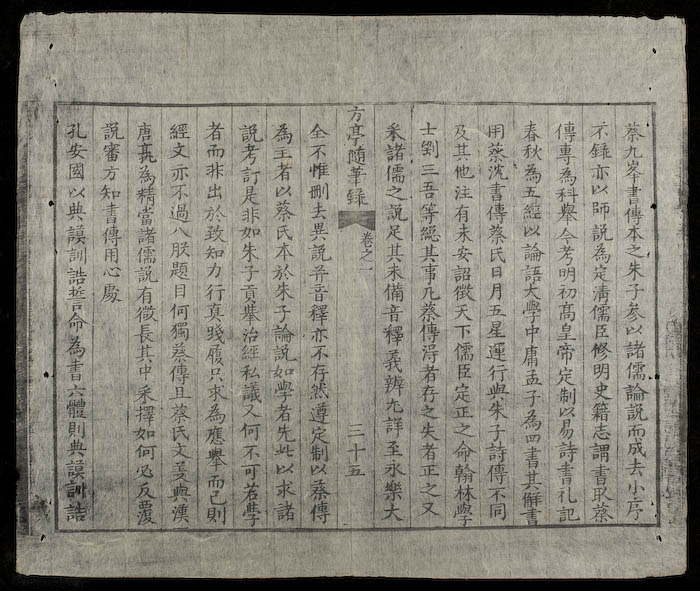 蔡九峯書傳本之朱子參以諸儒論説而成去小序
不錄亦以師説為定清儒臣修明史籍志謂書取蔡
傳專為科舉今考明初髙皇帝定制以易詩書礼記
春秋為五經以論語大學中庸孟子為四書其解書
用蔡沈書傳蔡氏日月五星運行與朱子詩傳不同
及其他注有未安詔徵天下儒臣定正之命翰林學
士劉三吾等總其事凡蔡傳淂者存之失者正之又
采諸儒之説足其未備音釋義辨尢詳至永樂大
方亭隨筆録 卷之一 三十五
全不惟刪去異説并音釋亦不存然遵定制以蔡傳
為主者以蔡氏本於朱子論説如學者先此以求諸
説考訂是非如朱子貢舉治經私議又何不可若學
者而非出於致知力行真踐履只求為應舉而已則
經文亦不過八股題目何獨蔡傳且蔡氏文義與漢
唐為精當諸儒説有徵長其中采擇如何必反覆
説審方知書傳用心處
孔安國以典謨訓誥誓命為書六體則典謨訓誥